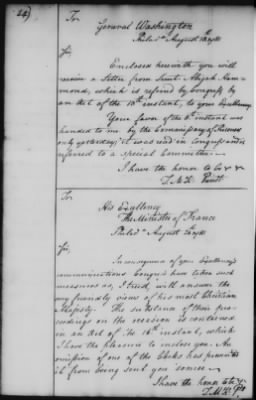 24)
To
General Washington
Philad.ª August 20, 1781
Sir,
Enclosed herewith you will
receive a Letter from Lieut. Abijah Ham-
mond, which is referred by Congress by
an Act of the 18th instant, to your Excellency.
Your favor of the 8th instant was
handed to me by the Commissary of Prisoners
only yesterday; it was read in Congress and is
referred to a special Committee.
I have the honor to be &c &c
T. M:K. Presidt.
To
His Excellency
The Minister of France
Philad.ª August 20, 1781
Sir,
In consequence of your Excellency's
communications Congress have taken such
measures as, I trust, will answer the
very friendly views of his most Christian
Majesty. The substance of their pro-
ceedings on the occasion is contained
in an Act of the 16th instant, which
I have the pleasure to inclose you. An
omission of one of the Clerks has prevented
it from being sent you sooner.
I have the honor to be &c.
T. M:K. P.t